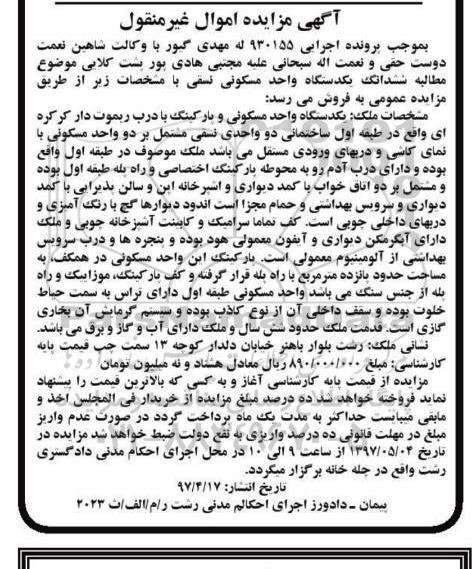 آگهی مزایده اموال غیرمنقول
بموجب پرونده اجرایی ۹۳۰۱۵۵ له مهدی گبور با وکالت شاهین نعمت
دوست حقی و نعمت اله سبحانی علیه مجتبی هادی پور پشت کلایی موضوع
مطالبه ششدانگ یکدستگاه واحد مسکونی نسقی با مشخصات زیر از طریق
مزایده عمومی به فروش می رسد:
مشخصات ملک: یکدستگاه واحد مسکونی و پارکینگ با درب ریموت دار کرکره
ای واقع در طبقه اول ساختمانی دو واحدی نسقی مشتمل بر دو واحد مسکونی با
نمای کاشی و دربهای ورودی مستقل می باشد ملک موصوف در طبقه اول واقع
بوده و دارای درب آدم رو به محوطه پارکینگ اختصاصی و راه پله طبقه اول بوده
و مشتمل بر دو اتاق خواب با کمد دیواری و اشپزخانه اپن و سالن پذیرایی با کمد
دیواری و سرویس بهداشتی و حمام مجزا است اندود دیوارها گچ با رنگ آمیزی و
دربهای داخلی چوبی است. کف تماما سرامیک و کابینت آشپزخانه چوبی و ملک
دارای آبگرمکن دیواری و آیفون معمولی هود بوده و پنجره ها و درب سرویس
بهداشتی از آلومینیوم معمولی است. پارکینگ این واحد مسکونی در همکف، به
مساحت حدود پانزده مترمربع با راه پله قرار گرفته و کف پارکینگ، موزاییک و راه
پله از جنس سنگ می باشد واحد مسکونی طبقه اول دارای تراس به سمت حیاط
خلوت بوده و سقف داخلی آن از نوع کاذب بوده و سیستم گرمایش آن بخاری
گازی است. قدمت ملک حدود شش سال و ملک دارای آب و گاز و برق می باشد.
نشانی ملک: رشت بلوار باهنر خیابان دلدار کوچه ۱۳ سمت چپ قیمت پایه
کارشناسی: مبلغ ریال معادل هشتاد و نه میلیون تومان
مزایده از قیمت پایه کارشناسی آغاز و به کسی که بالاترین قیمت را پیشنهاد
نماید فروخته خواهد شد ده درصد مبلغ مزایده از خریدار فی المجلس اخذ و
مابقی میبایست حداکثر به مدت یک ماه پرداخت گردد در صورت عدم واریز
مبلغ در مهلت قانونی ده درصد واریزی به نفع دولت ضبط خواهد شد مزایده در
تاریخ ۱۳۹۷/۰۵/۰۴ از ساعت ۹ الی ۱۰ در محل اجرای احکام مدنی دادگستری
رشت واقع در چله خانه برگزار میگردد.
تاریخ انتشار: ۹۷/۴/۱۷
پیمان ـ دادورز اجرای احکالم مدنی رشت ر/م/الف/ث ۲۰۲۳